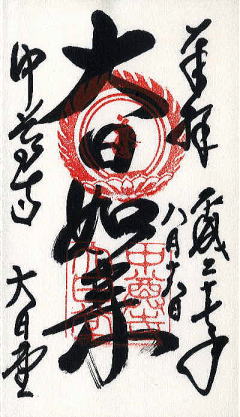 奉拝
平成二十七年
八月十六日
大日如来
中尊寺
大日堂
中尊寺
大日堂